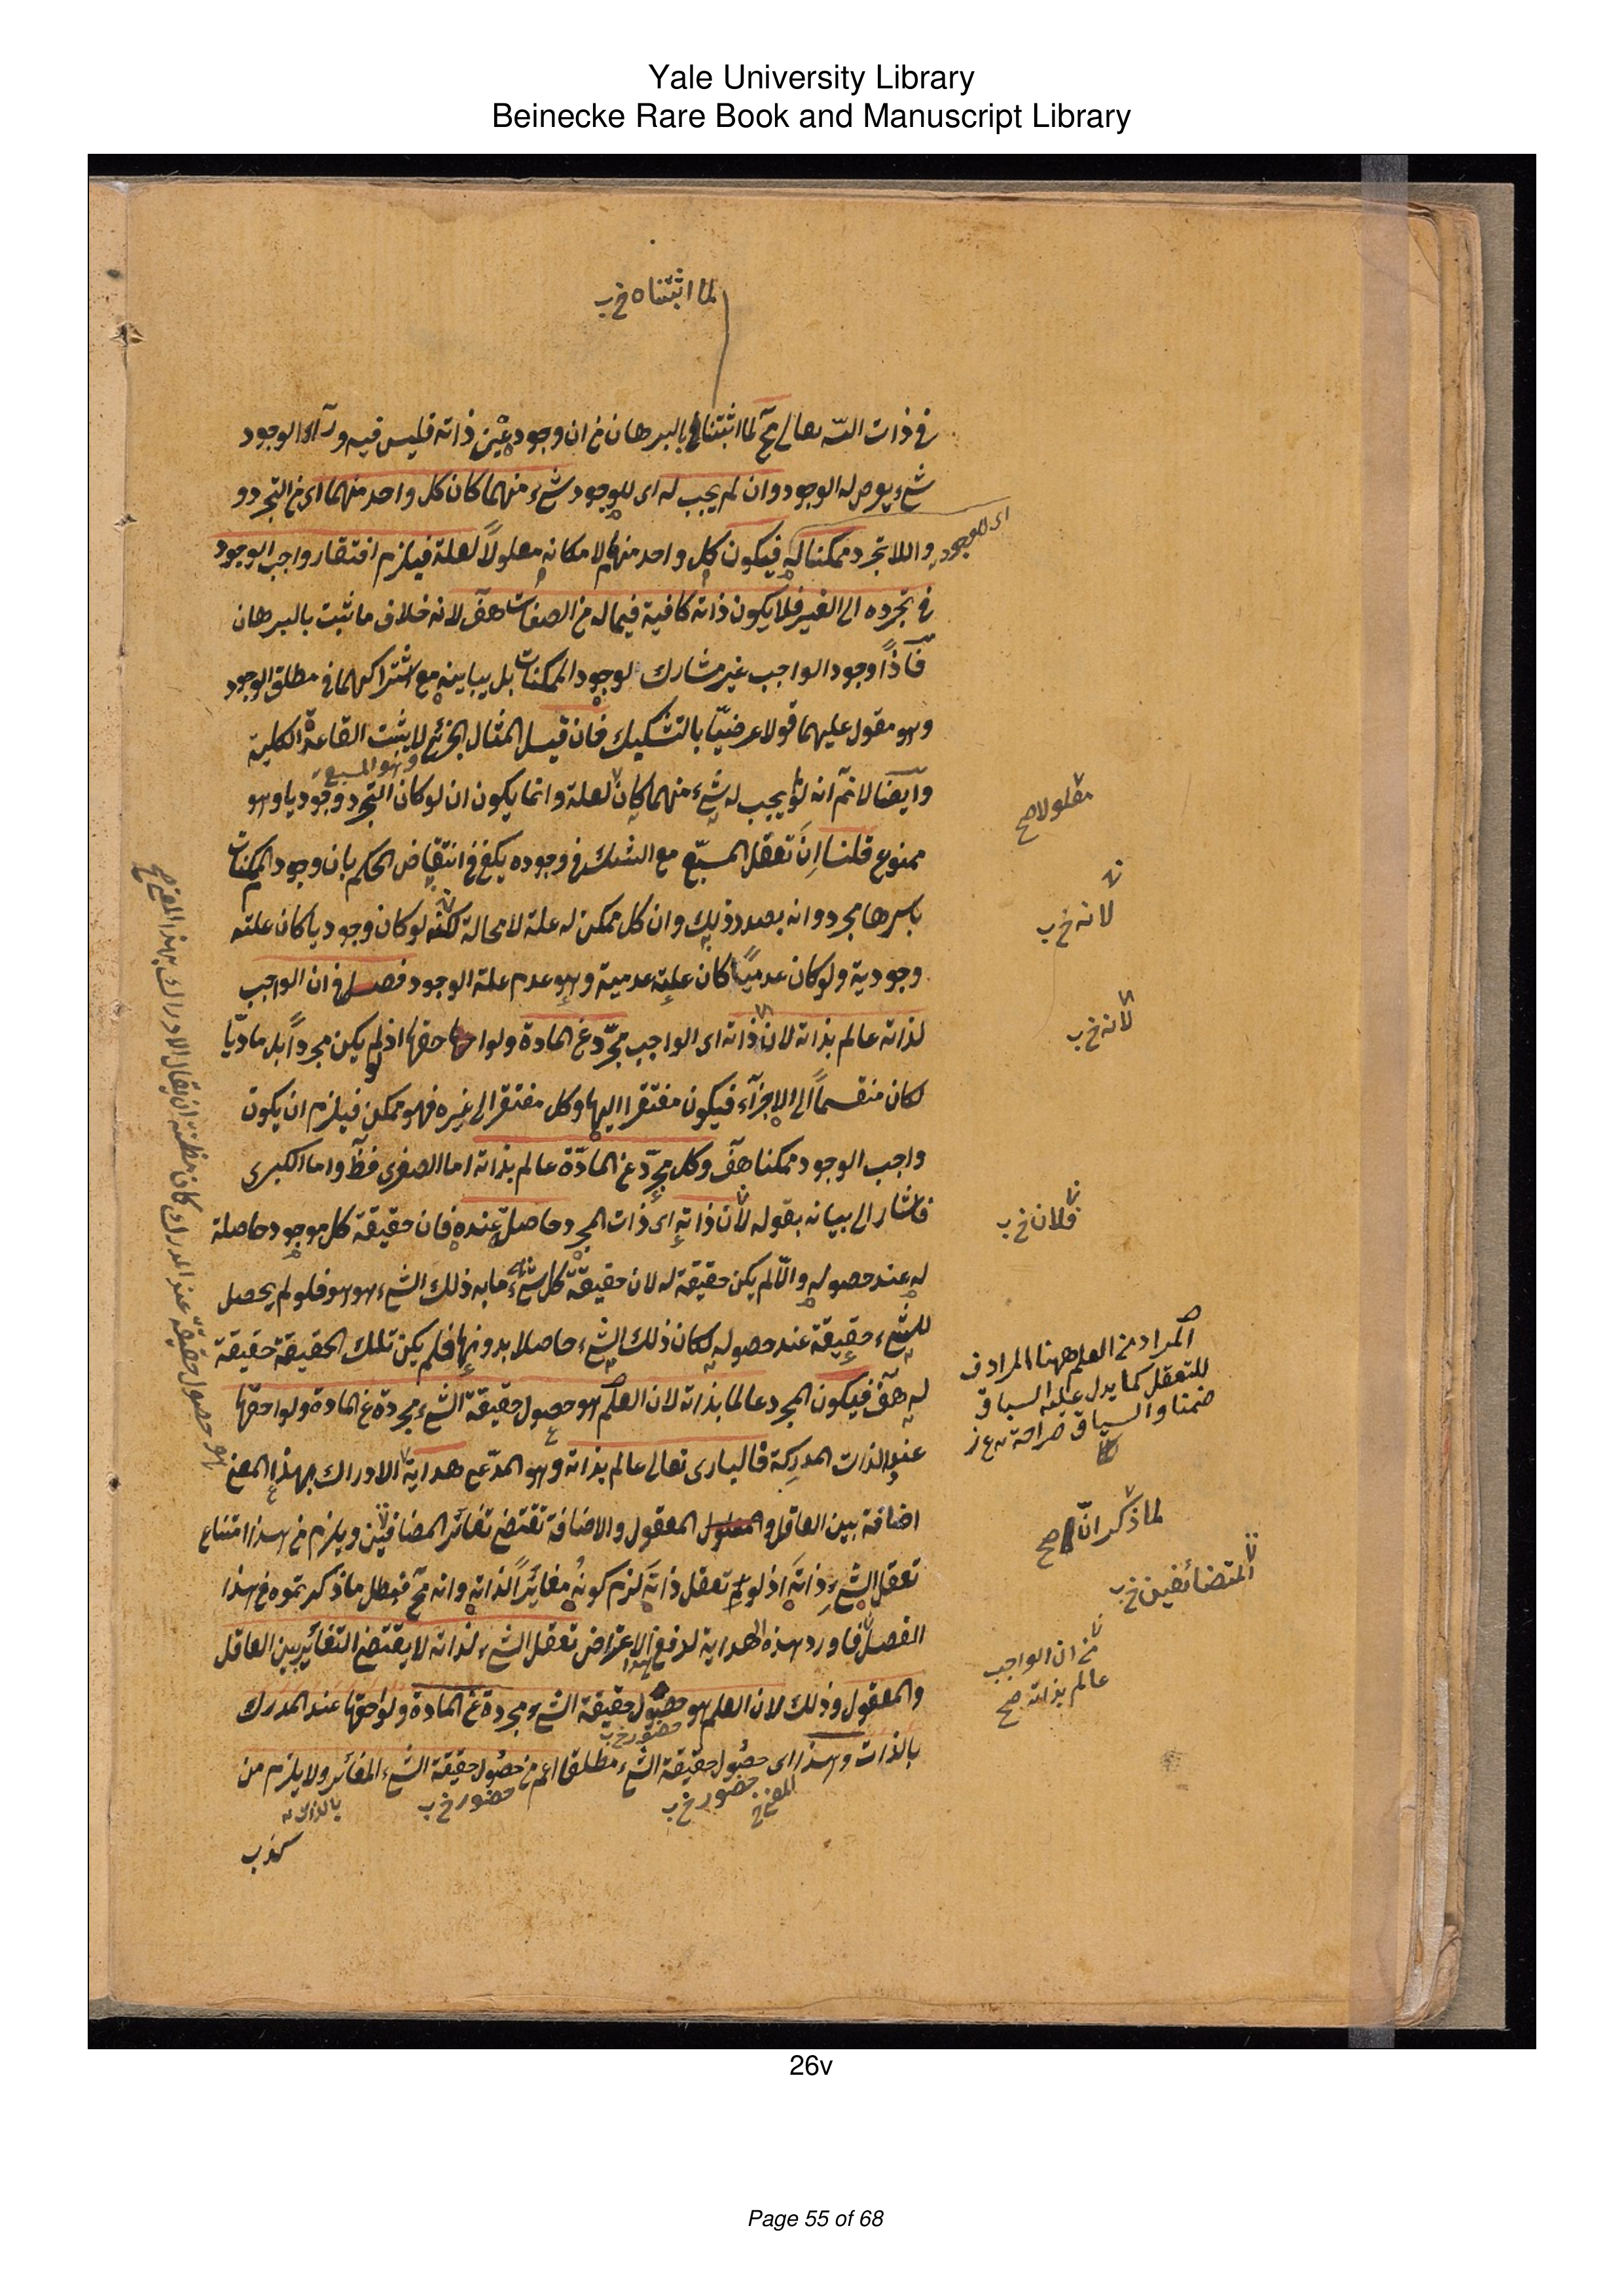 Yale University Library
Beinecke Rare Book and Manuscript Library
لما اثبتناه خ ب
فى ذات الله تعالى مح لما اثبتناه بالبرهان من ان وجوده عين ذاته فليس فيه وراء الوجود
شىء يعرض له الوجود وان لم يجب له اى للوجود شىء منهما كان كل واحد منهما اى من التجرد و
واللاتجرد ممكنا له فيكون كل واحد منهما لامكانه معلولاً لعلة فيلزم افتقار واجب الوجود
اى للوجود
فى تجرده الى الغير فلا يكون ذاته كافية فيما له من الصفات هف لانه خلاف ما ثبت بالبرهان
فاذاً وجود الواجب غير مشارك لوجود الممكنات بل يباينه مع اشتراكهما فى مطلق الوجود
وهو مقول عليهما قولا عرضيّا بالتشكيك فان قيل المثال الجزئى لا يثبت القاعدة الكلية
وهو المسبع
وايضا لا نم انه لو لم يجب له شىء منهما كان لعلة وانما يكون ان لو كان التجرد وجوديا وهو
معلولا صح
ممنوع قلنا انّ تعقل المسبّع مع الشك فى وجوده يكفى فى انتقاض الحكم بان وجود الممكنات
باسرها مجرد وانه بصدد ذلك وان كل ممكن له علة لا محالة لكنه لو كان وجوديا كان علته
لانه خ ب
وجودية ولو كان عدميّا كان علته عدمية وهو عدم علة الوجود فصل فى ان الواجب
لذاته عالم بذاته لان ذاته اى الواجب مجرّد عن المادة ولواحقها اذ لو لم يكن مجرداً بل ماديّا
لانه خ ب
لكان منقسماً الى الاجزآء فيكون مفتقرا اليها وكل مفتقر الى غيره فهو ممكن فيلزم ان يكون
واجب الوجود ممكنا هف وكل مجرّد عن المادّة عالم بذاته اما الصغرى فظ واما الكبرى
فاشار الى بيانه بقوله لان ذاته اى ذات المجرد حاصلة عنده فان حقيقة كل موجود حاصلة
فلان خ ب
له عند حصوله والّا لم يكن حقيقة له لان حقيقة كل شىء ما به ذلك الشىء هو هو فلو لم يحصل
للشىء حقيقة عند حصوله لكان ذلك الشىء حاصلا بدونها فلم يكن تلك الحقيقة حقيقة
المراد من العلم ههنا المرادف
للتعقل كما يدل عليه السباق
ضمنا والسياق صراحة
له هف فيكون المجرد عالما بذاته لان العلم هو حصول حقيقة الشىء مجردة عن المادة ولواحقها
عند الذات المدركة فالبارى تعالى عالم بذاته وهو المدّعى هداية الادراك بهذا المعنى
اضافة بين العاقل والمعقول والاضافة تقتضى تغائر المضافين ويلزم من هذا امتناع
لما ذكر انّ صح
تعقل الشىء ذاته اذ لو تعقل ذاته لزم كونه مغائراً لذاته وانه مح فبطل ما ذكرتموه فى هذا
المتضائفين خ ب
الفصل فاورد هذه الهداية لدفع هذا الاعتراض تعقل الشىء لذاته لا يقتضى التغائر بين العاقل
من ان الواجب
عالم بذاته صح
والمعقول وذلك لان العلم هو حصول حقيقة الشىء مجردة عن المادة ولواحقها عند المدرك
حضور خ ب
بالذات وهذا اى حصول حقيقة الشىء مطلقا اعم من حصول حقيقة الشىء المغائر ولا يلزم من
المعنى خ
حضور خ ب
حضور خ ب
بالذات
كذب
هو حصول حقيقة عند المدرك كان مظنة ان يقال الادراك بهذا المعنى صح
26v
Page 55 of 68